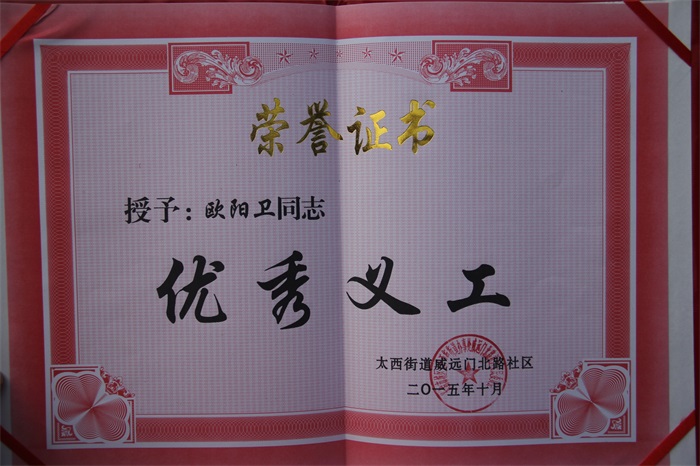 荣誉证书
授予：欧阳卫同志
优秀义工
太西街道威远门北路社区
二〇一五年十月